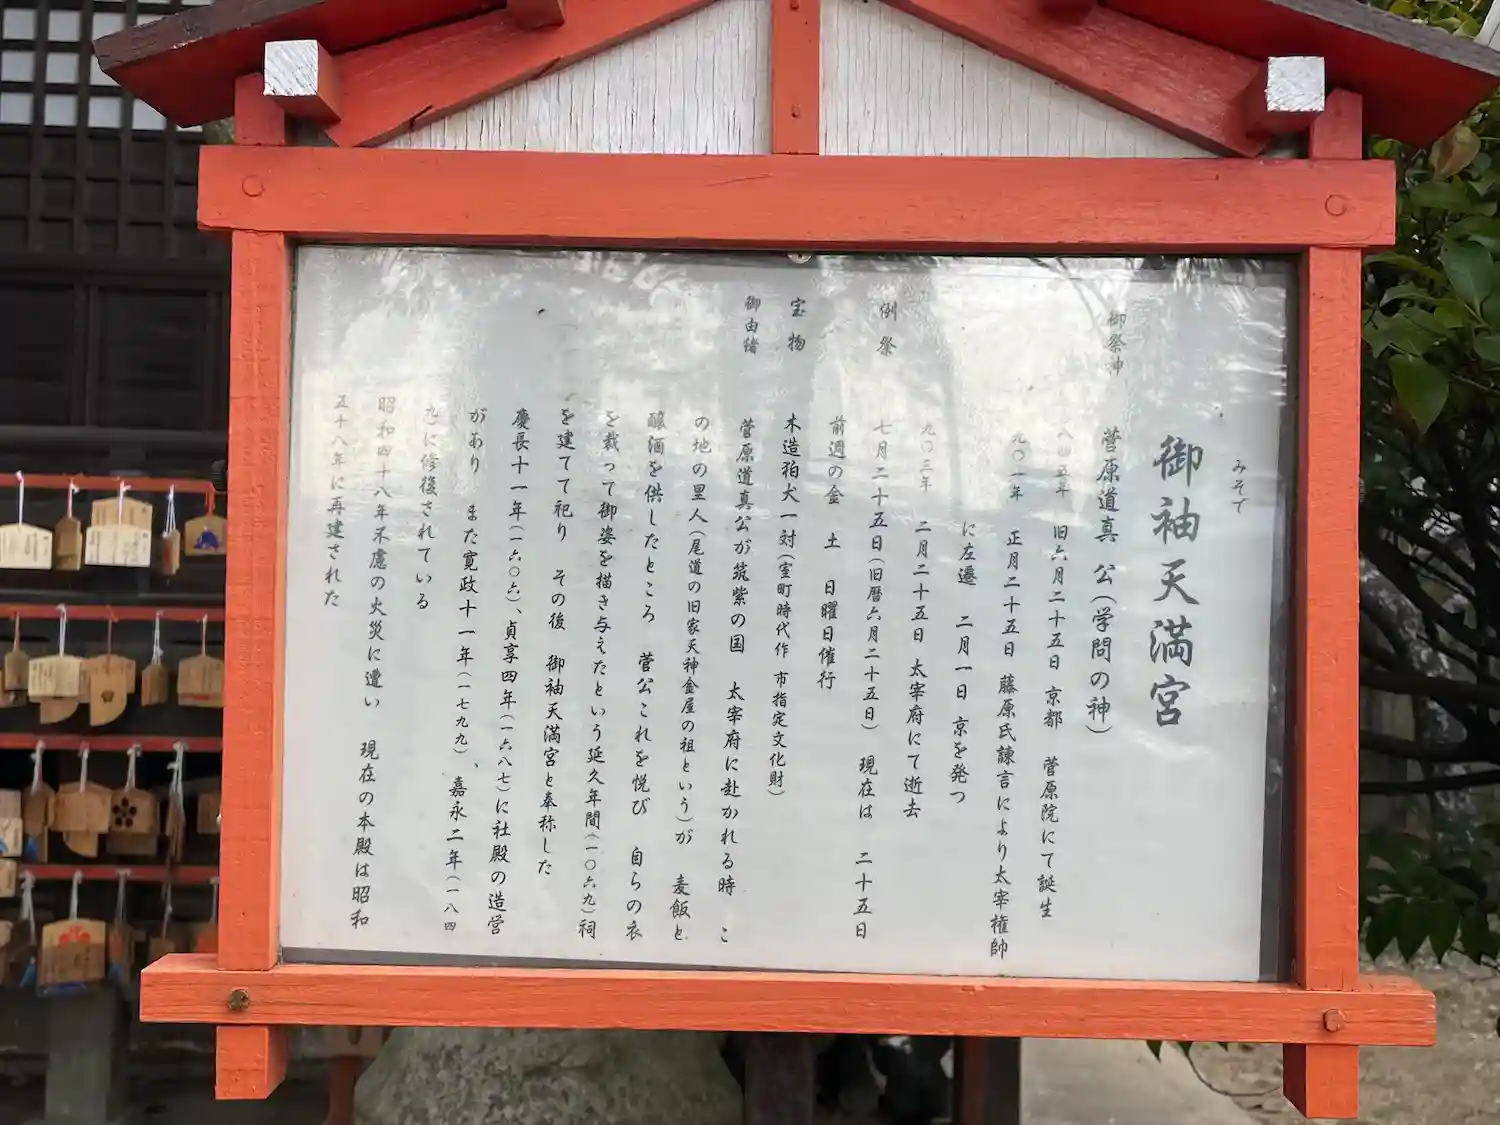 みそで
御袖天満宮
御祭神 菅原道真 公(学問の神)
八四五年 旧六月二十五日 京都 菅原院にて誕生
九〇一年 正月二十五日 藤原氏諫言により太宰権帥
に左遷 二月一日 京を発つ
九〇三年 二月二十五日 太宰府にて逝去
例祭 七月二十五日(旧暦六月二十五日) 現在は 二十五日
前週の金 土 日曜日催行
宝物 木造狛犬一対(室町時代作 市指定文化財)
御由緒 菅原道真公が筑紫の国 太宰府に赴かれる時 こ
の地の里人(尾道の旧家天神金屋の祖という)が 麦飯と
醸酒を供したところ 菅公これを悦び 自らの衣
を裁って御姿を描き与えたという延久年間(一〇六九)祠
を建てて祀り その後 御袖天満宮と奉称した
慶長十一年(一六〇六)、貞享四年(一六八七)に社殿の造営
があり また寛政十一年(一七九九)、嘉永二年(一八四
九)に修復されている
昭和四十八年不慮の火災に遭い 現在の本殿は昭和
五十八年に再建された